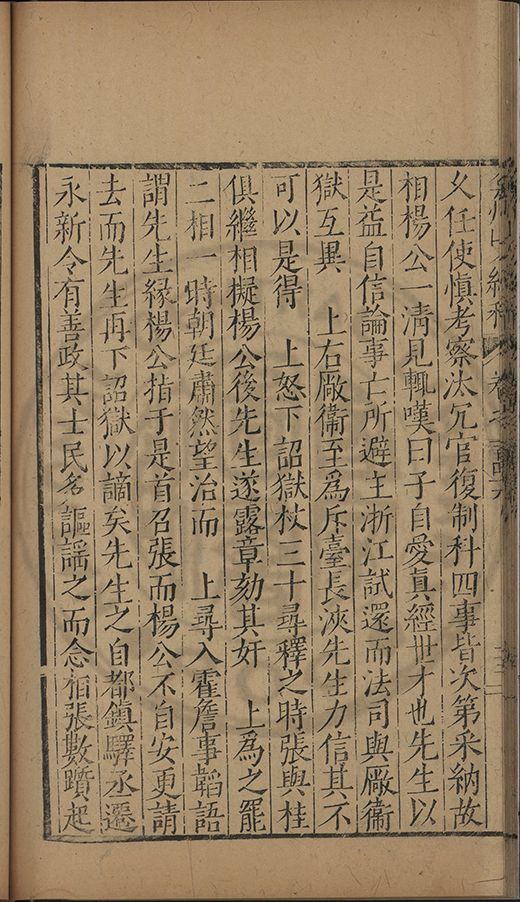 久任使慎考察汰冗官復制科四事皆次第采納故
相楊公一清見輒嘆曰子自愛真經世才也先生以
是益自信論事亡所避主浙江試還而法司與厰衛
獄互異　上右厰衛至為斥臺長浹先生力信其不
可以是得　上怒下詔獄杖三十尋釋之時張與桂
俱繼相擬楊公後先生遂露章劾其奸　上為之罷
二相一時朝廷肅然望治而　上尋入霍詹事韜語
謂先生緣楊公指于是首召張而楊公不自安更請
去而先生再下詔獄以謫矣先生之自都鎮驛丞遷
永新令有善政其士民多謳謡之而念相張數躓起